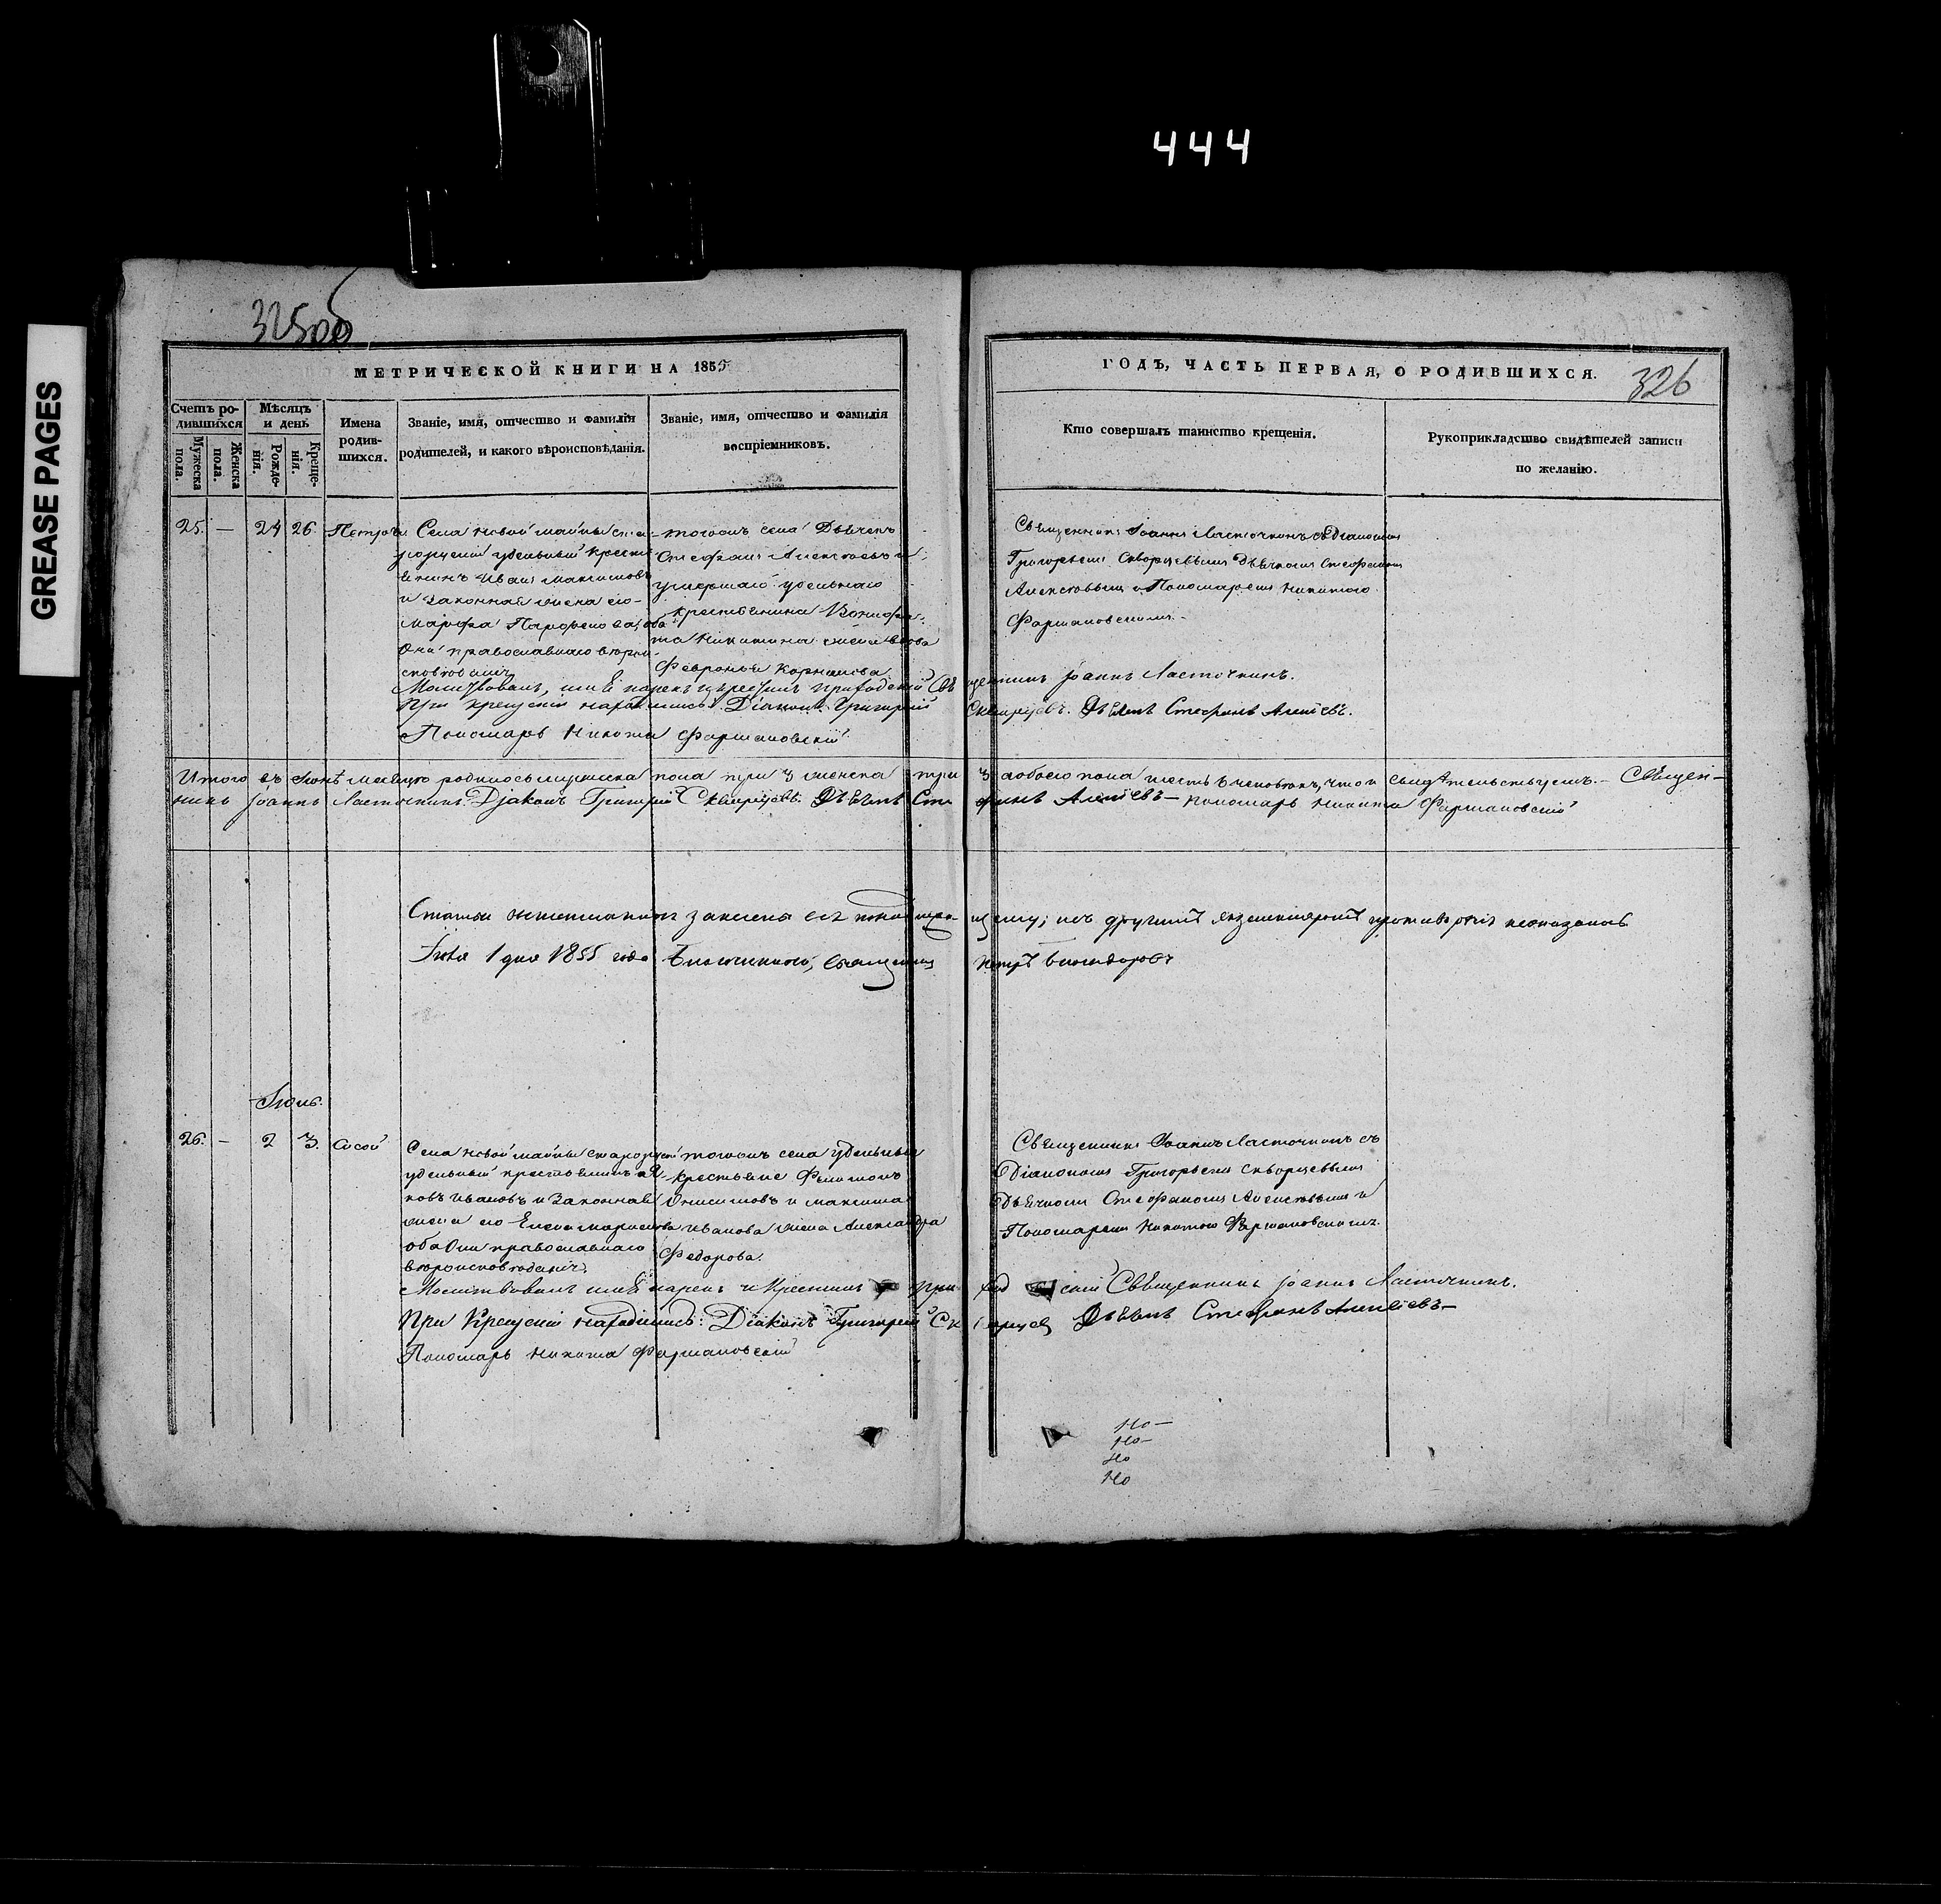 444
GREASE PAGES
325об
326
МЕТРИЧЕСКОЙ КНИГИ НА 1855
ГОДЪ, ЧАСТЬ ПЕРВАЯ, О РОДИВШИХСЯ.
Счетъ ро-
дившихся
Мужеска пола.
Женска пола.
Мѣсяцъ
и день
Рожде-
нія.
Креще-
нія.
Имена
родив-
шихся.
Званіе, имя, отчество и фамилія
родителей, и какого вѣроисповѣданія.
Званіе, имя, отчество и фамилія
воспріемниковъ.
Кто совершалъ таинство крещенія.
Рукоприкладство свидѣтелей записи
по желанію.
25. — 24 26. Петръ
Села Новой Майны ста-
рорускій удельный крестья-
нинъ Иванъ Максимовъ
и законная жена его
Марфа Парфенова, оба
они православнаго вѣро-
исповѣданія
тогожъ села Дьячекъ
Стефанъ Алексѣевъ и
умершаго удельнаго
крестьянина Вонифа-
та Никитина жена вдова
Февронья Корнилова.
Священникъ Іоаннъ Ласточкинъ съ Діакономъ
Григорьемъ Скворцевымъ Дьячкомъ Стефаномъ
Алексѣевымъ и Пономаремъ Никитою
Фармаковскимъ.
Молитвовалъ, имя нарекъ и крестилъ приходскій Священникъ Іоаннъ Ласточкинъ.
При крещеніи находились: Діаконъ Григорій Скворцовъ. Дьячекъ Стефанъ Алексіевъ.
Пономарь Никита Фармаковскій
Итого въ Іюнѣ мѣсяцѣ родилось мужеска пола три 3 женска три 3 а обоего пола шесть 6 человѣкъ, что и свидѣтельствуемъ. — Священ-
никъ Іоаннъ Ласточкинъ. Діаконъ Григорій Скворцовъ. Дьячекъ Стефанъ Алексіевъ — пономарь Никита Фармаковскій
1 дня 1855 года Благочинный, Священникъ Петръ
Іюль.
26. — 2 3. Сосой
Села Новой Майны старорускій
удельный крестьянинъ Я-
ковъ Ивановъ и законная
жена его Елена
оба они православнаго
вѣроисповѣданія.
тогожъ села удельные
крестьяне Филимонъ
Онисимовъ и Максима
Иванова жена Александра
Федорова.
Священникъ Іоаннъ Ласточкинъ съ
Діакономъ Григорьемъ Скворцевымъ
Дьячкомъ Стефаномъ Алексѣевымъ и
Пономаремъ Никитою Фармаковскимъ.
Молитвовалъ имя нарекъ и крестилъ приходскій Священникъ Іоаннъ Ласточкинъ.
При Крещеніи находились: Діаконъ Григорій Скворцевъ Дьячекъ Стефанъ Алексіевъ —
Пономарь Никита Фармаковскій
Но —
Но —
Но
Но